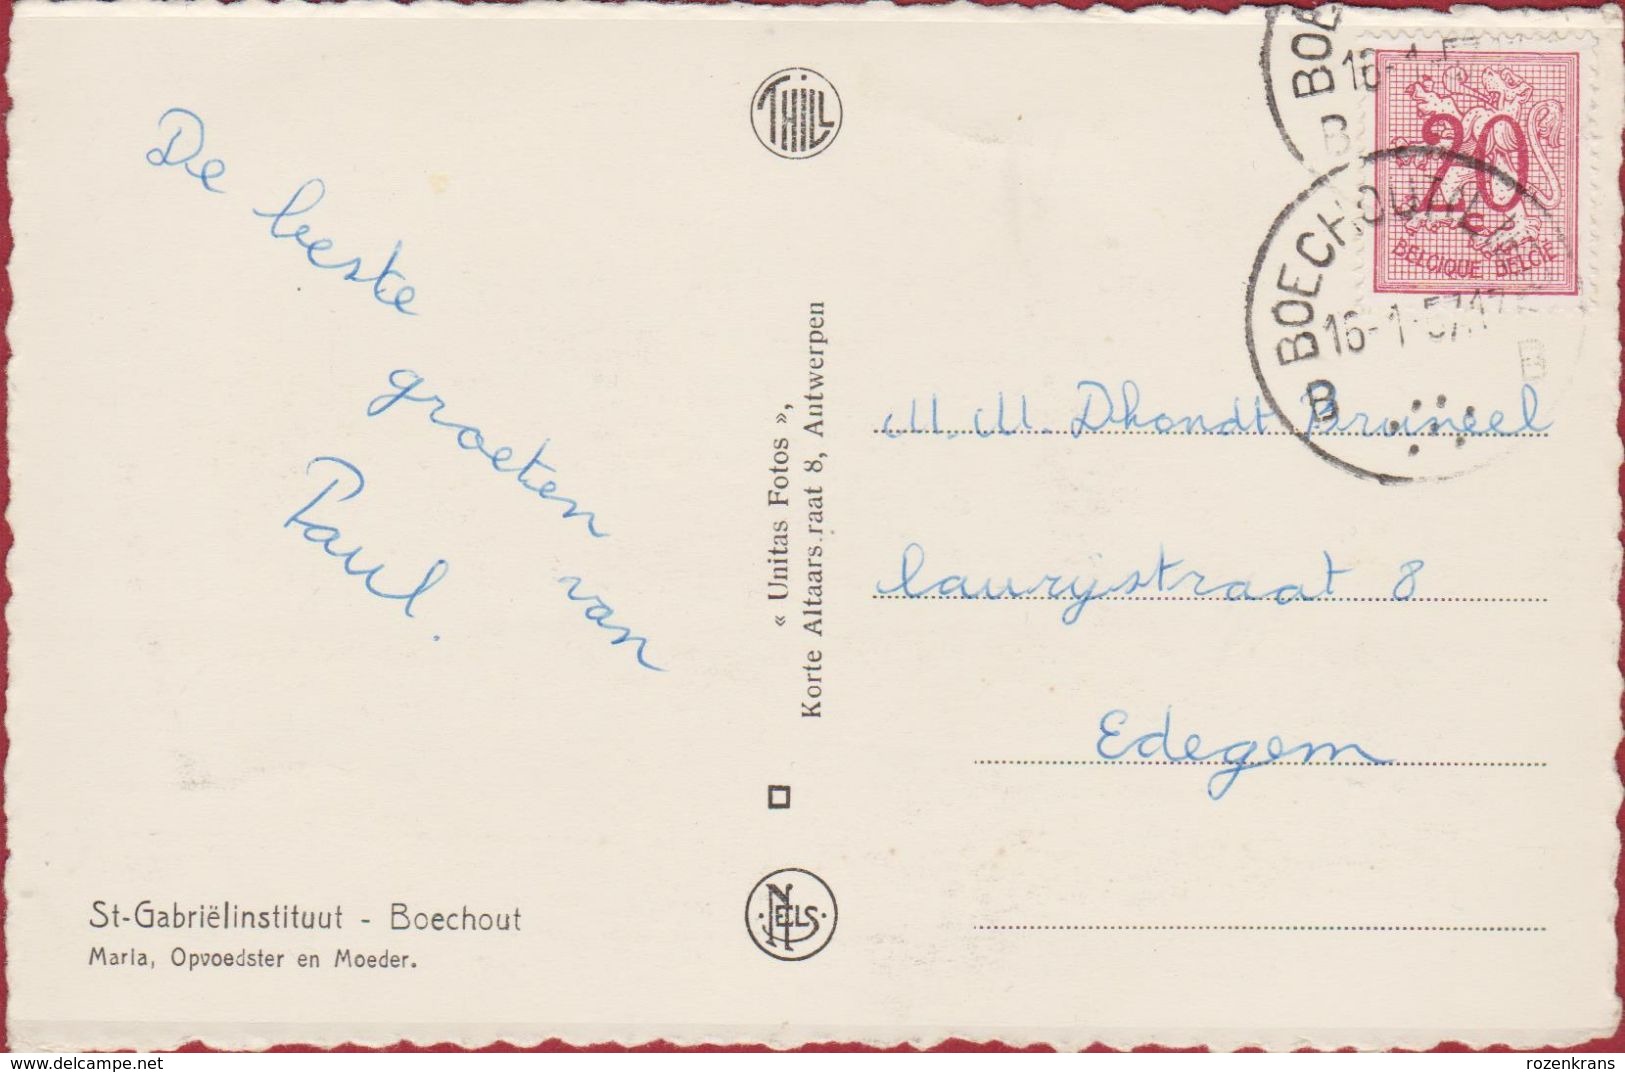 De beste
groeten van
Paul.
St-Gabriëlinstituut - Boechout
Maria, Opvoedster en Moeder.
THILL
« Unitas Fotos »,
Korte Altaars.raat 8, Antwerpen
NELS
20
BELGIQUE BELGIE
BOE
16-1-57
B
BOECHOUT
16-1-57
B
B
M.M. Dhondt Bruneel
laurijstraat 8
Edegem
www.delcampe.net
rozenkrans